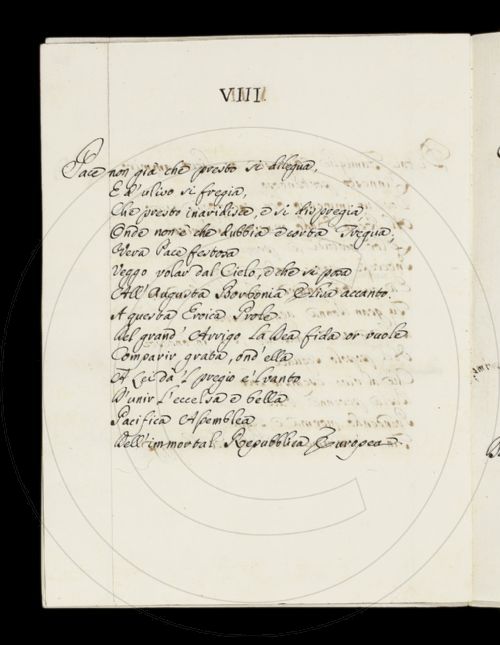 VIIII.
Pace non già che presto si dilegua,
E d'ulivo si fregia,
Che presto inaridisce, e si dispregia
Onde non è che dubbia e corta Tregua,
Vera Pace festosa
Veggo volar dal Cielo, e che si posa
All'Augusta Borbonia Elisa accanto.
A questa Eroica Prole
Del grand'Arrigo La Dea fida or vuole
Comparir grata, ond'ella
A Lei dà 'l pregio e 'l vanto
D'unir l'eccelsa e bella
Pacifica Assemblea
Dell'immortal Repubblica Europea